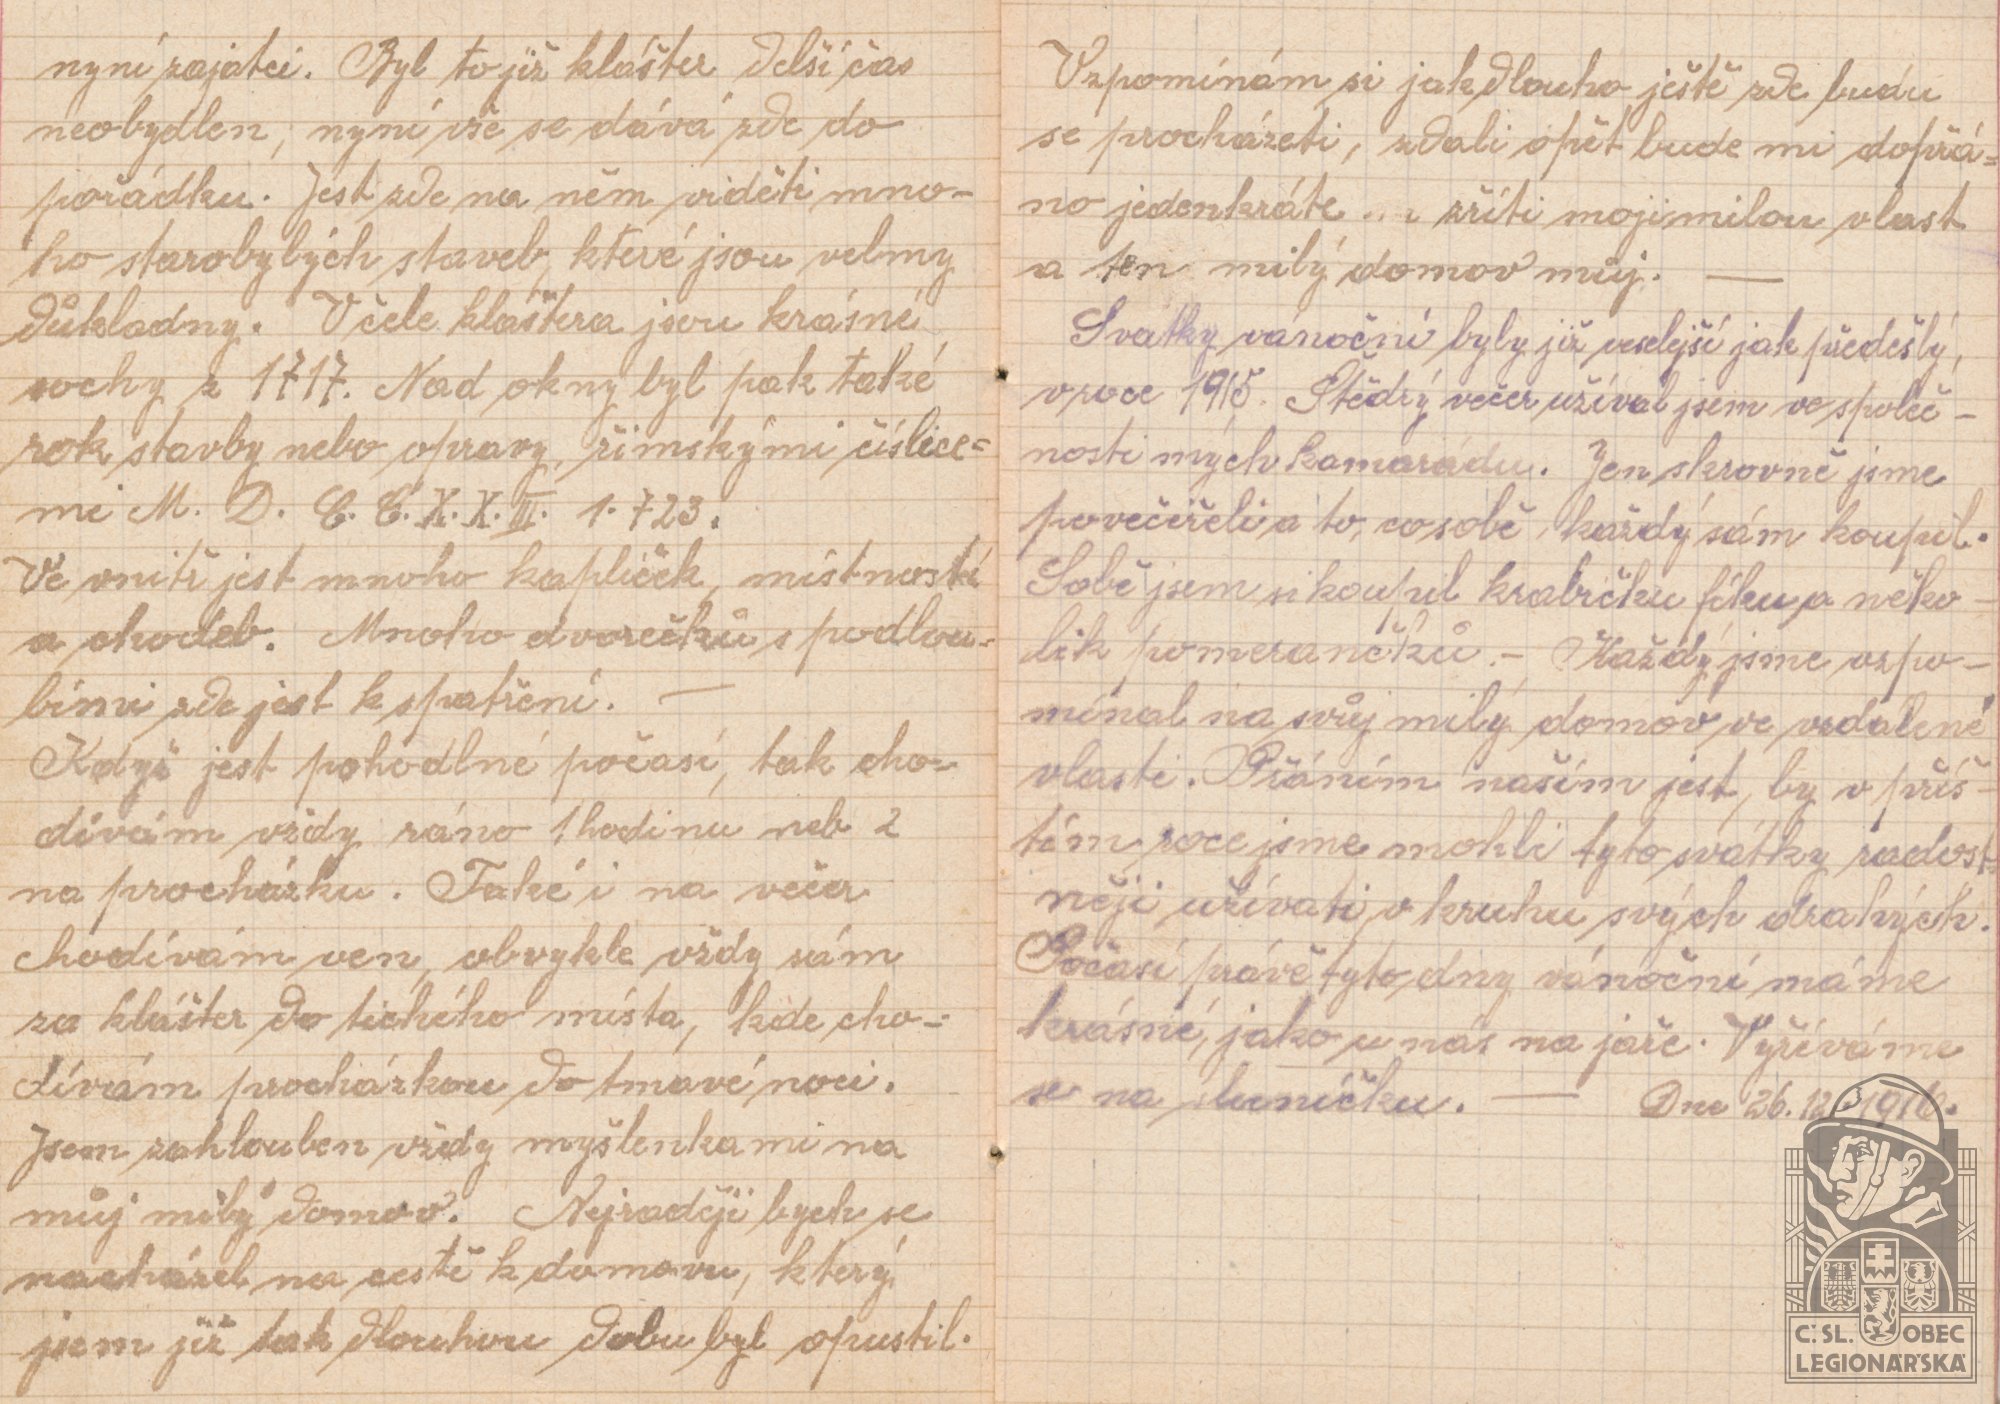 nyní zajatci. Byl to již klášter delší čas
neobydlen, nyní vše se dává zde do
pořádku. Jest zde na něm viděti mno-
ho starobylých staveb, které jsou velmy
důkladny. V čele kláštera jsou krásné
sochy z 1717. Nad okny byl pak také
rok stavby nebo opravy, římskými číslice=
mi M. D. C. C. X. X. III. 1.723.
Ve vnitř jest mnoho kapliček, místností
a chodeb. Mnoho dvorečků s podlou-
bími zde jest k spatření. —
Když jest pohodlné počasí, tak cho-
dívám vždy ráno 1 hodinu neb 2
na procházku. Také i na večer
chodívám ven, obvykle vždy sám
za klášter do tichého místa, kde cho-
dívám procházkou do tmavé noci.
Jsem zahlouben vždy myšlenkami na
můj milý domov. Nejraději bych se
nacházel na cestě k domovu, který
jsem již tak dlouhou dobu byl opustil.
Vzpomínám si jak dlouho ještě zde budu
se procházeti, zdali opět bude mi dopřá=
no jedenkráte ... zříti moji milou vlast
a ten milý domov můj. —
Svátky vánoční byly již veselejší jak předešlý,
v roce 1915. Štědrý večer užíval jsem ve společ-
nosti mých kamarádu. Jen skrovně jsme
povečeřeli a to, co sobě každý sám koupil.
Sobě jsem si koupil krabičku fíku a něko-
lik pomerančků. – Každý jsme vzpo-
mínal na svůj milý domov ve vzdálené
vlasti. Přáním našim jest, by v příš-
tím roce jsme mohli tyto svátky radost-
něji užívati v kruhu svých drahých.
Počasí právě tyto dny vánoční máme
krásné, jako u nás na jaře. Vyříváme
se na sluníčku. — Dne 26. 12. 1916.
Č. SL. OBEC
LEGIONÁŘSKÁ